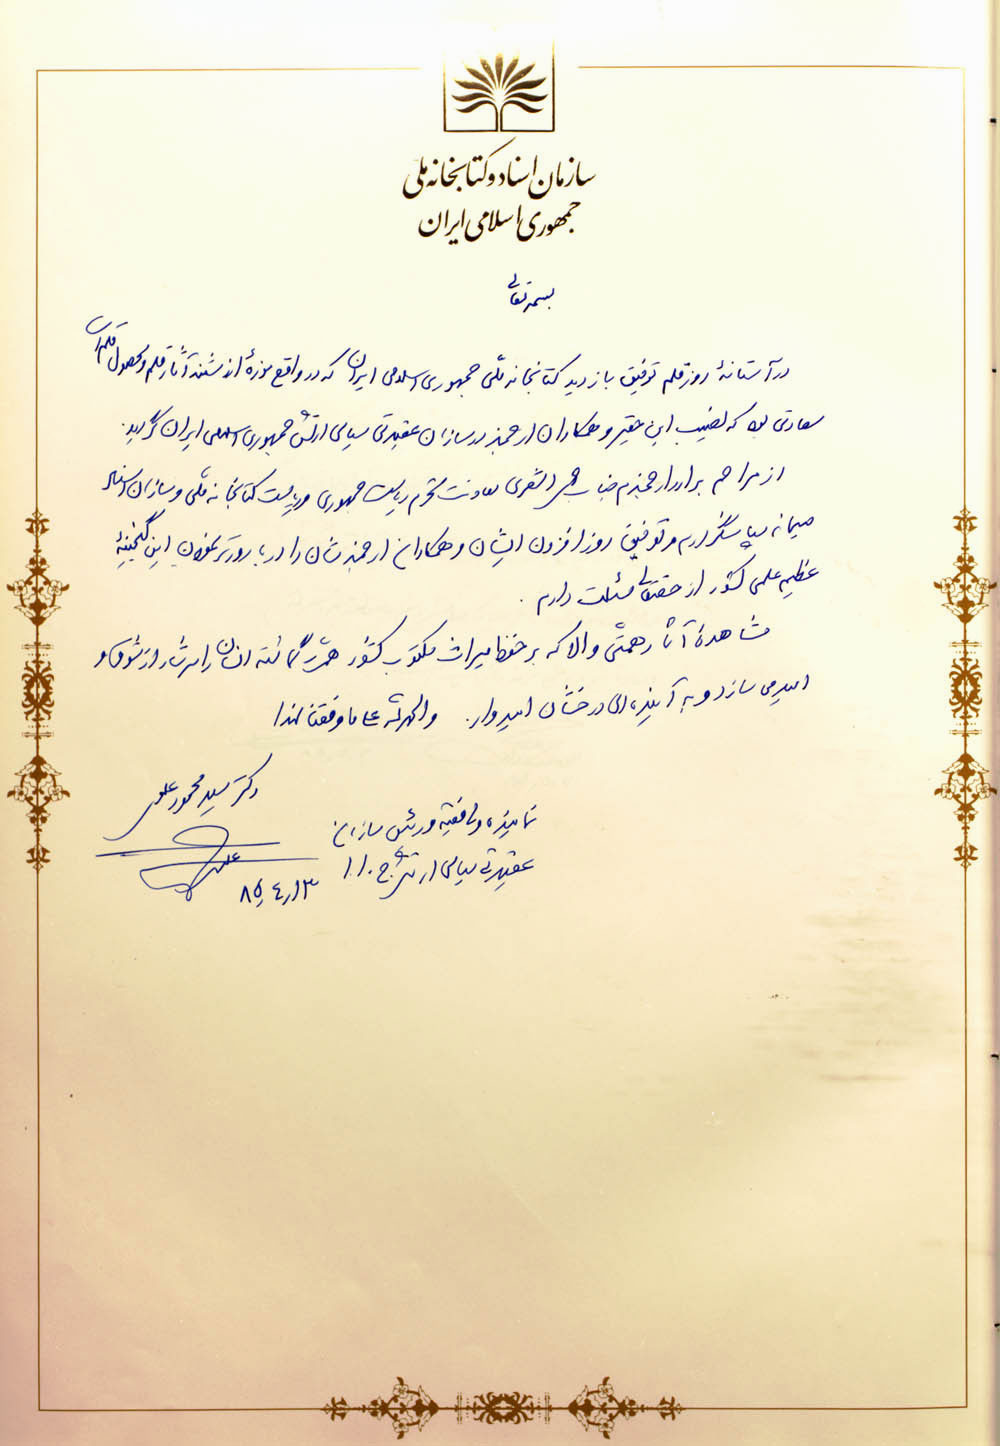 سازمان اسناد و کتابخانه ملی
جمهوری اسلامی ایران
بسمه تعالی
در آستانهٔ روز قلم توفیق بازدید کتابخانه ملی جمهوری اسلامی ایران که در واقع موزهٔ ارزشمند آثار قلم و محصول قلم است
سعادتی بود که نصیب این حقیر و همکاران ارجمند در سازمان عقیدتی سیاسی ارتش جمهوری اسلامی ایران گردید.
از مراحم برادر ارجمندم جناب اشعری معاونت محترم ریاست جمهوری و ریاست کتابخانه ملی و سازمان اسناد
صمیمانه سپاسگزارم و توفیق روزافزون ایشان و همکاران ارجمندشان را در بارورتر نمودن این گنجینهٔ
عظیم علمی کشور از حقتعالی مسئلت دارم.
مشاهدهٔ آثار همتی والا که بر حفظ میراث مکتوب کشور همت گماشته انسان را سرشار از شوق و
امید می سازد و به آینده ای درخشان امیدوار. والحمدلله علی ما وفقنا لهذا
دکتر سید محمود علوی
نماینده ولی فقیه و رئیس سازمان
عقیدتی سیاسی ارتش ج.ا.ا
۸۵,۴,۱۳